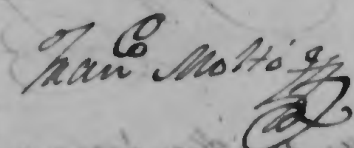 Fran^co Moltó